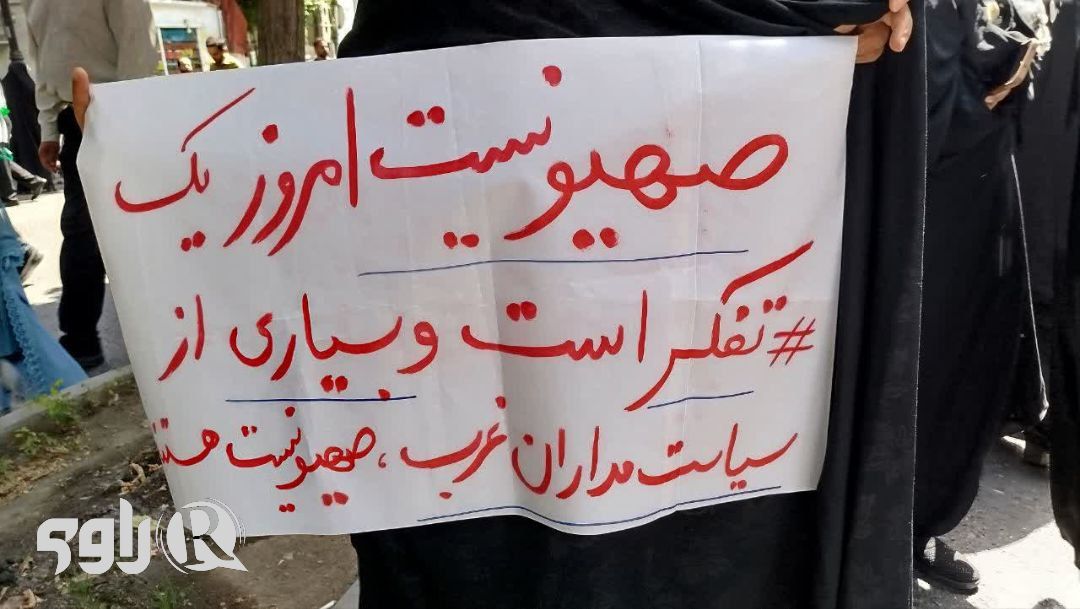 صهیونیست امروز یک
#تفکر است و بسیاری از
سیاست مداران غرب، صهیونیست هستند
راوی R